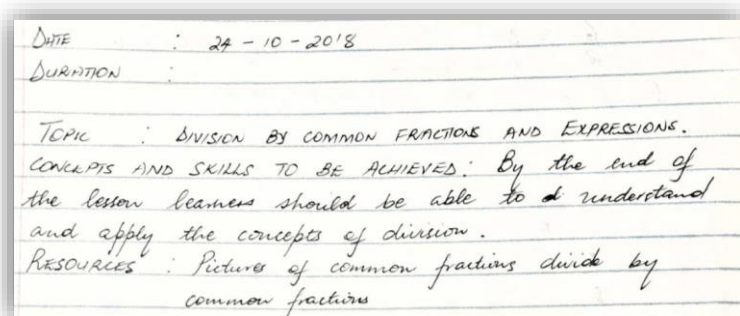 DATE : 24 - 10 - 2018
DURATION :
TOPIC : DIVISION BY COMMON FRACTIONS AND EXPRESSIONS.
CONCEPTS AND SKILLS TO BE ACHIEVED: By the end of
the lesson learners should be able to d understand
and apply the concepts of division.
RESOURCES : Pictures of common fractions divide by
common fractions